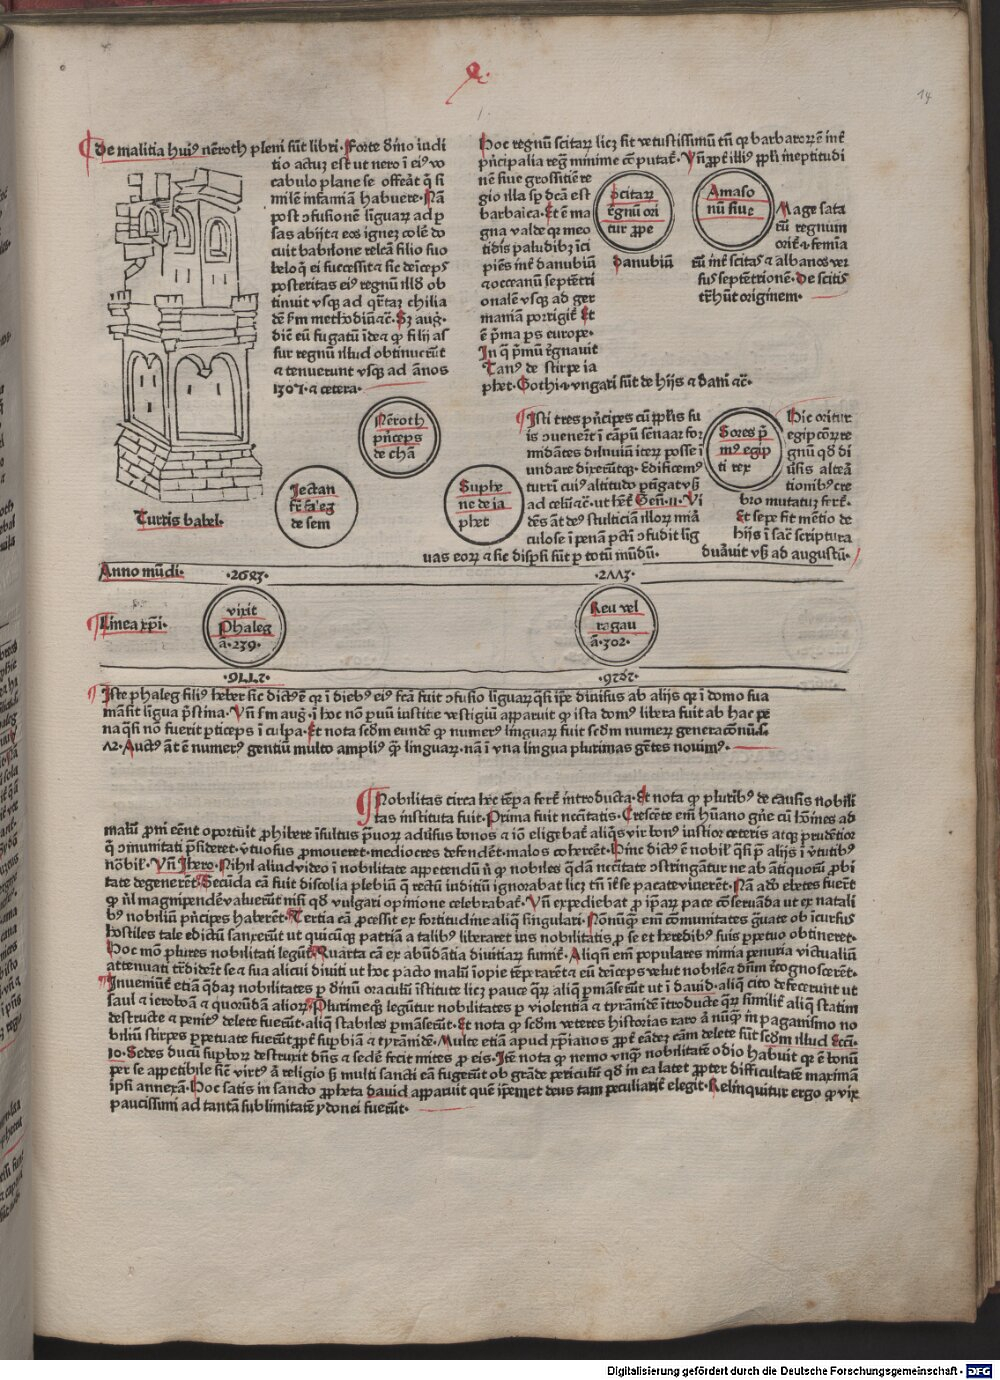 14
De malitia huiꝰ nēroth pleni sūt libri· Forte dīno iudi
tio actuȝ est ut nero ī eiꝰ vo
cabulo plane se offerāt q̄ si
milē infamiā habuere· Nā
post ɔfusionē līguarꝝ ad ꝑ
sas abijt ⁊ eos ignez colē do
cuit babilone relcā filio suo
belo q̄ ei successit ⁊ sic deīceps
posteritas eiꝰ regnū illđ ob
tinuit vsqȝ ad qrtaȝ chilia
dē sm̄ methodiū ⁊c̄· Sȝ aug·
dīc eū fugatū īde ⁊ ꝙ filij as
sur regnū illud obtinuerūt
⁊ tenuerunt vsqȝ ad ānos
1307· ⁊ cetera·
Turris babel·
Hoc regnū scitaꝝ licȝ sit vetustissimū tn̄ ꝙ barbaroꝝ ē int̄
prīcipalia reg̃ minime cē putat̄· Vn̄ ꝓpt̄ illiꝰ ꝓpli īneptitudi
nē siue grossitiē re
gio illa sꝑ dcā est
barbaica· Et ē ma
gna valde qȝ meo
tidis paludibȝ īci
piēs int̄ danubiū
⁊ occeanū septētri
onalē vsqȝ ad ger
maniā porrigit̄· Et
ē prīma ps europe·
In q̄ prīmū r̄gnauit
Tanꝰ de stirpe ia
phet· Gothi ⁊ vngari sūt de hijs ⁊ dani ⁊c̄·
Scitaꝝ
r̄gnū ori
tur ꝓpe
danubiū
Amaso
nū siue
Magesata
rū regnum
orit̄ ⁊ femīa
rū int̄ scitas ⁊ albanos ver
sus septētrionē· De scitis
tr̄hūt originem·
Nēroth
prīceps
de chā
Jectan
fr̄ faleg
de sem
Suphe
ne de ia
phet
Isti tres prīcipes cū ꝓplis su
is ɔuenerūt ī cāpū senaar for
midātes diluuiū iteꝝ posse ī
undare dixerūtqȝ· Edificemꝰ
turrī cuiꝰ altitudo ꝑtīgat vsq̄
ad celū ⁊c̄· ut hēt̄ Gen̄·11· Vi
dēs āt deꝰ stulticiā illoꝝ mirā
culose ī penā pctī ɔfudit līg
uas eoꝝ ⁊ sic disꝑsi sūt ꝑ totū mūdū·
Sores pri
mꝰ egip
ti rex
Hic oritur
egipcioꝝ re
gnū qđ di
ūsis alteā
tionibꝰ cre
bro mutatuȝ fert̄·
Et sepe fit mētio de
hijs ī sac̄ scriptura
durauit vsq̄ ad augustū·
Anno mūdi·
·2693·
·2423·
Linea xp̄i·
vixit
Phaleg
ā·239·
Reu vel
ragau
ā·302·
Iste phaleg filiꝰ heber sic dictꝰ ē qȝ ī diebꝰ eiꝰ fcā fuit ɔfusio līguarꝝ q̄si ip̄e diuisus ab alijs qȝ ī domo sua
māsit līgua pristina· Vn̄ sm̄ aug̃· ī hoc nō pruū iustitie vestigiū apparuit ꝙ ista domꝰ libera fuit ab hac pe
na q̄si nō fuerit ꝑticeps ī culpa· Et nota scđm eundē ꝙ numerꝰ līguarꝝ fuit scđm numeꝝ generacōnū·s·
72· Auctꝰ āt ē numerꝰ gentiū multo ampliꝰ ꝙ̄ līguarꝝ· nā ī vna lingua plurimas gētes nouimꝰ·
Nobilitas circa hec tēpa fert̄ introducta· Et nota ꝙ pluribꝰ de causis nobili
tas instituta fuit· Prima fuit necātatis· Crescēte em̄ hūano gn̄e cū hoīnes ad
malū ꝓni eēnt oportuit ꝓhibere īsultus prauoꝝ aduſus bonos ⁊ iō eligebat̄ aliqs vir bonꝰ iustior ceteris atqȝ prudētior
q̄ ɔmunitati prsideret· vtuosus ꝓmoueret· mediocres defendēt· malos cohercēt· Hinc dictꝰ ē nobil q̄si pre alijs ī vtutibꝰ
nōbil· Vn̄ Ihero· Nihil aliud video ī nobilitate appetendū nisi ꝙ nobiles q̄dā necātate ɔstringātur ne ab ātiquoꝝ ꝓbi
tate degenerēt· Secūda cā fuit discolia plebiū q̄ rectū iuditiū ignorabāt licȝ tn̄ īter se pacate viuerēt· Nā ado ebetes fuerūt
ꝙ nil magnipendē valuerūt nisi qđ vulgari opinione celebrabat̄· Vn̄ expediebat ꝓ ipaꝝ pace cōseruāda ut ex natali
bꝰ nobiliū prīcipes haberēt· Tertia cā ꝓcessit ex fortitudine aliqȝ singulari· Nonūqȝ em̄ cōmunitates grauate ob īcursus
hostiles tale edictū sanxerūt ut quicūqȝ patriā a talibꝰ liberaret ius nobilitatis ꝓ se et heredibꝰ suis ꝑpetuo obtineret·
Hoc mō plures nobilitati legūt̄· Quarta cā ex abūdātia diuitiaꝝ sumit̄· Aliqn̄ em̄ populares nimia penuria victualiū
attenuati trādiderūt se ⁊ sua alicui diuiti ut hoc pacto malū īopie tēperarēt ⁊ eū deīceps velut nobilē ⁊ dn̄m recognoscerēt·
Inueniūt etiā qdaȝ nobilitates ꝑ diuinū oraculū īstitute licȝ pauce qrȝ aliq̄ ꝑmāserūt ut ī dauid· aliq̄ cito defecerunt ut
saul ⁊ ieroboā ⁊ quorūdā alioꝝ· Plurimeqȝ legūtur nobilitates ꝑ violentiā ⁊ tyrānidē ītroducte qrȝ similit̄ aliq̄ statim
destructe ⁊ penitꝰ delete fuerūt· aliq̄ stabiles ꝑmāserūt· Et nota ꝙ scđm veteres historias raro ā nūqȝ in paganismo no
biliū stirpes ꝑpetuate fuerūt ꝓpt̄ suꝑbiā ⁊ tyrānidē· Multe etiā apud xp̄ianos ꝓpt̄ eādeȝ cām delete sūt scđm illud Eccī·
10· Sedes ducū suꝑboꝝ destruxit dn̄s ⁊ sedē fecit mites ꝓ eis· Itē nota ꝙ nemo vnqȝ nobilitatē odio habuit qȝ ē bonū
per se appetibile sic̄ virtꝰ ā religio sȝ multi sancti eā fugerūt ob grāde periculū qđ in ea latet ꝓpter difficultatē maximā
ipsi annexā· Hoc satis in sancto ꝓpheta dauid apparuit quē ipemet deus tam peculiarit̄ elegit· Relinquitur ergo ꝙ vix
paucissimi ad tantā sublimitatē ydonei fuerūt·
Digitalisierung gefördert durch die Deutsche Forschungsgemeinschaft - DFG